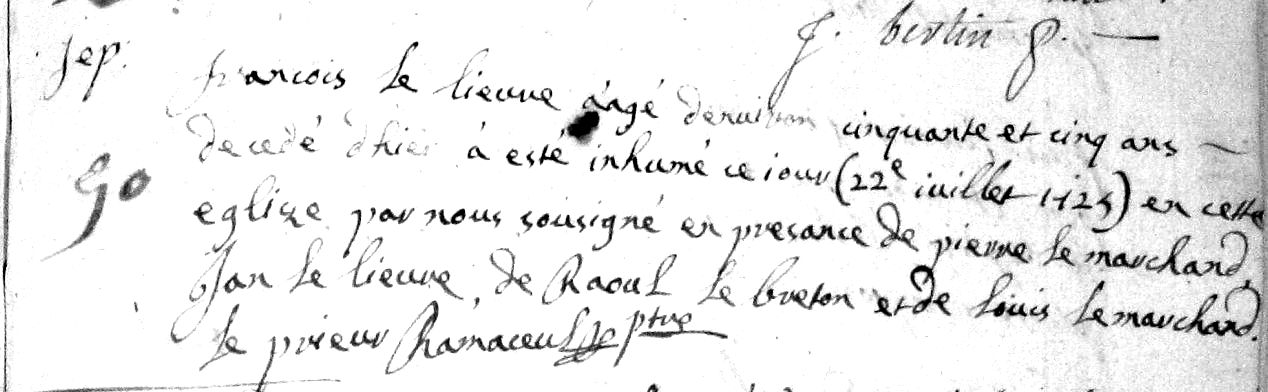 J. bertin p.
Sep.
francois Le lieuvre aâgé denuiron cinquante et cinq ans
decedé dhier à esté inhumé ce iour (22e iuillet 1725) en cette
90
eglize par nous sousigné en presance de pierre Le marchand,
Jan Le lieuvre, de Raoul Le breton et de Louis Lemarchand.
Le prieur ptre